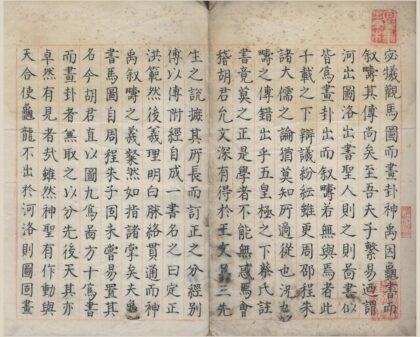 宓犧觀馬圖而畫卦神禹因龜書而
叙疇其傳尚矣至吾夫子繫易迺謂
河出圖洛出書聖人則之則啚書似
皆爲畫卦出而叙疇若無與焉者此
千載之下辯議紛紜雖更周邵程朱
諸大儒之論猶莫知所適從也況九
疇之傳錯出乎五皇極之下蔡氏註
書竟莫之正是學者不能無惑焉會
稽胡君允文深有得於王文吳三先
生之說攟其所長而訂正之分經別
傳以傳附經自成一書名之曰定正
洪範然後義理明白脉絡貫通而神
禹叙疇之義粲然如指諸掌矣夫龜
書馬圖自周程朱子固未嘗易置其
名今胡君直以圖九爲啚方十爲書
而畫卦者無取之以分先後天其亦
卓然有見者哉雖然神聖有作動與
天合使龜龍不出於河洛則圖固畫